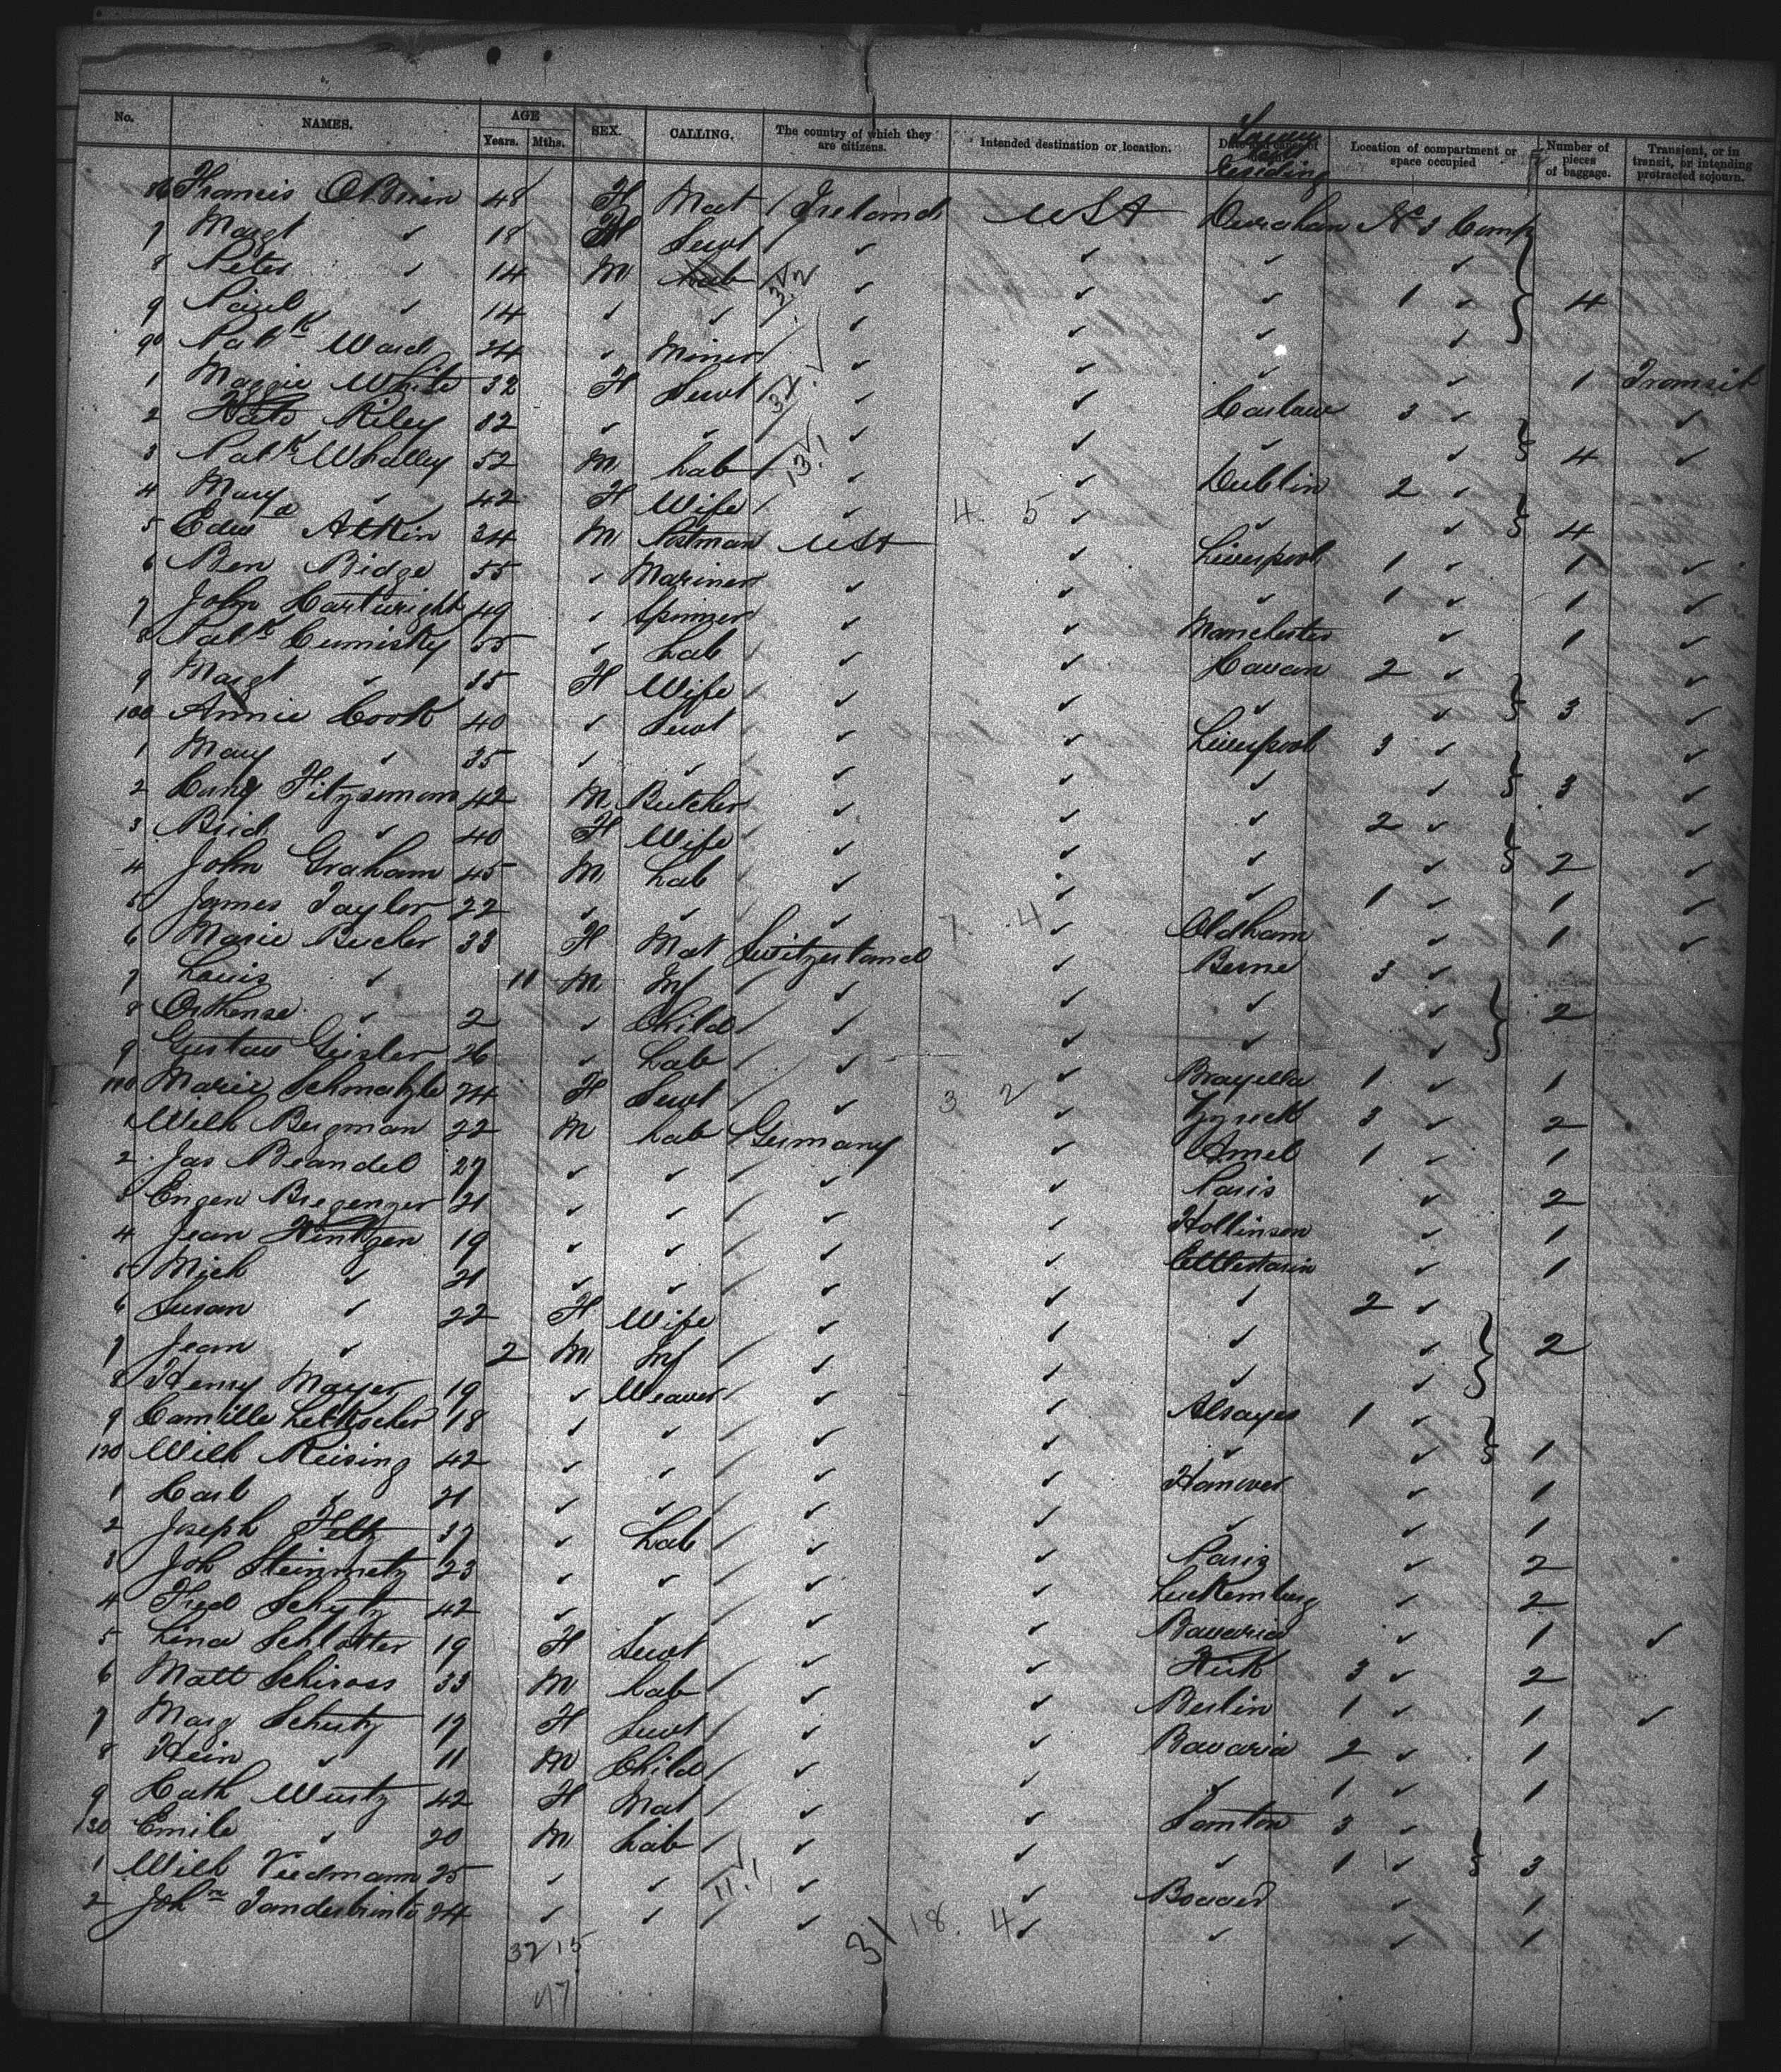 No. NAMES. AGE Years. Mths. SEX. CALLING. The country of which they are citizens. Intended destination or location. Location of compartment or space occupied Number of pieces of baggage. Transient, or in transit, or intending protracted sojourn.
86 Francis O'Brien 48 F Mat / Ireland USA No 3 Comp
7 Margt ✓ 18 F Servt / ✓ ✓ ✓ ✓
8 Peter ✓ 14 M Lab / ✓ ✓ ✓ 1 ✓ 4
9 Paul ✓ 14 ✓ ✓ ✓ ✓ ✓ ✓
90 Patk Ward 24 ✓ Miner / ✓ ✓ ✓ ✓ 1 Transit
1 Maggie White 32 F Servt / ✓ ✓ Carlow 3 ✓ ✓
2 Kate Riley 32 ✓ ✓ ✓ ✓ ✓ ✓ 4 ✓
3 Patk Whalley 52 M Lab / ✓ ✓ Dublin 2 ✓
4 Mary ✓ 42 F Wife / ✓ 4. 5 ✓ ✓ ✓ 4
5 Edwd Atkin 34 M Postman USA ✓ Liverpool 1 ✓ 1 ✓
6 Ben Bidge 55 ✓ Mariner ✓ ✓ ✓ 1 ✓ 1 ✓
7 John Cartwright 49 ✓ Spinner ✓ ✓ Manchester ✓ 1 ✓
8 Patk Cumisky 55 ✓ Lab ✓ ✓ Cavan 2 ✓ ✓
9 Margt ✓ 55 F Wife / ✓ ✓ ✓ ✓ 3 ✓
100 Annie Cook 40 ✓ Servt ✓ ✓ Liverpool 3 ✓ ✓
1 Mary ✓ 35 ✓ ✓ ✓ ✓ ✓ ✓ 3 ✓
2 Fitzsimom 42 M Butcher ✓ ✓ ✓ 2 ✓ ✓
3 Brid ✓ 40 F Wife ✓ ✓ ✓ ✓ 2 ✓
4 John Graham 45 M Lab ✓ ✓ ✓ 1 ✓ 1 ✓
5 James Tayler 22 ✓ ✓ ✓ 7. 4 ✓ Oldham ✓ 1 ✓
6 Marie Bucler 33 F Mat Switzerland ✓ Berne 3 ✓
7 Louis ✓ 11 M Inf / ✓ ✓ ✓ ✓ 2
8 Orthense ✓ 2 ✓ Child / ✓ ✓ ✓ ✓
9 Gustav Geisler 26 ✓ Lab / ✓ ✓ 1 ✓ 1
110 Marie Schmatzle 24 F Servt / ✓ 3 2 ✓ 3 ✓ 2
1 Wilh Bergman 22 M Lab / Germany ✓ 1 ✓ 1
2 Jas Brandel 27 ✓ ✓ / ✓ ✓ Paris ✓ 2
3 Eugen Bregenzer 21 ✓ ✓ / ✓ ✓ Hollinson ✓ 1
4 Jean Hintzen 19 ✓ ✓ / ✓ ✓ ✓ 1
5 Mich ✓ 21 ✓ ✓ / ✓ ✓ ✓ 2 ✓
6 Susan ✓ 22 F Wife ✓ ✓ ✓ ✓ 2
7 Jean ✓ 2 M Inf / ✓ ✓ ✓ ✓
8 Henry Mayer 19 ✓ Weaver / ✓ ✓ 1 ✓
9 Camille 18 ✓ ✓ / ✓ ✓ ✓ ✓ 1
120 Wilh Reising 42 ✓ ✓ / ✓ ✓ Hanover ✓ 1
1 Carl ✓ 21 ✓ ✓ / ✓ ✓ ✓ ✓ 1
2 Joseph Feltz 37 ✓ Lab / ✓ ✓ Paris ✓ 2
3 Joh Steinmetz 23 ✓ ✓ / ✓ ✓ Luckemburg ✓ 2
4 Fred Schytz 42 ✓ ✓ / ✓ ✓ Bavaria ✓ 1 ✓
5 Lina Schlotter 19 F Servt / ✓ ✓ 3 ✓ 2
6 Matt Schirass 33 M Lab / ✓ ✓ Berlin 1 ✓ 1 ✓
7 Marg Schutz 19 F Servt / ✓ ✓ Bavaria 2 ✓ 1
8 Hein ✓ 11 M Child / ✓ ✓ ✓ 1 ✓ 1
9 Cath Wurtz 42 F Mat / ✓ ✓ 3 ✓
130 Emile ✓ 20 M Lab / ✓ ✓ ✓ 1 ✓ 3
1 Wilh Viedmann 25 ✓ ✓ ✓ ✓ ✓ 1
2 Johm 24 ✓ ✓ / ✓ 18. 4 ✓ ✓ ✓ 1
32 15 31
47